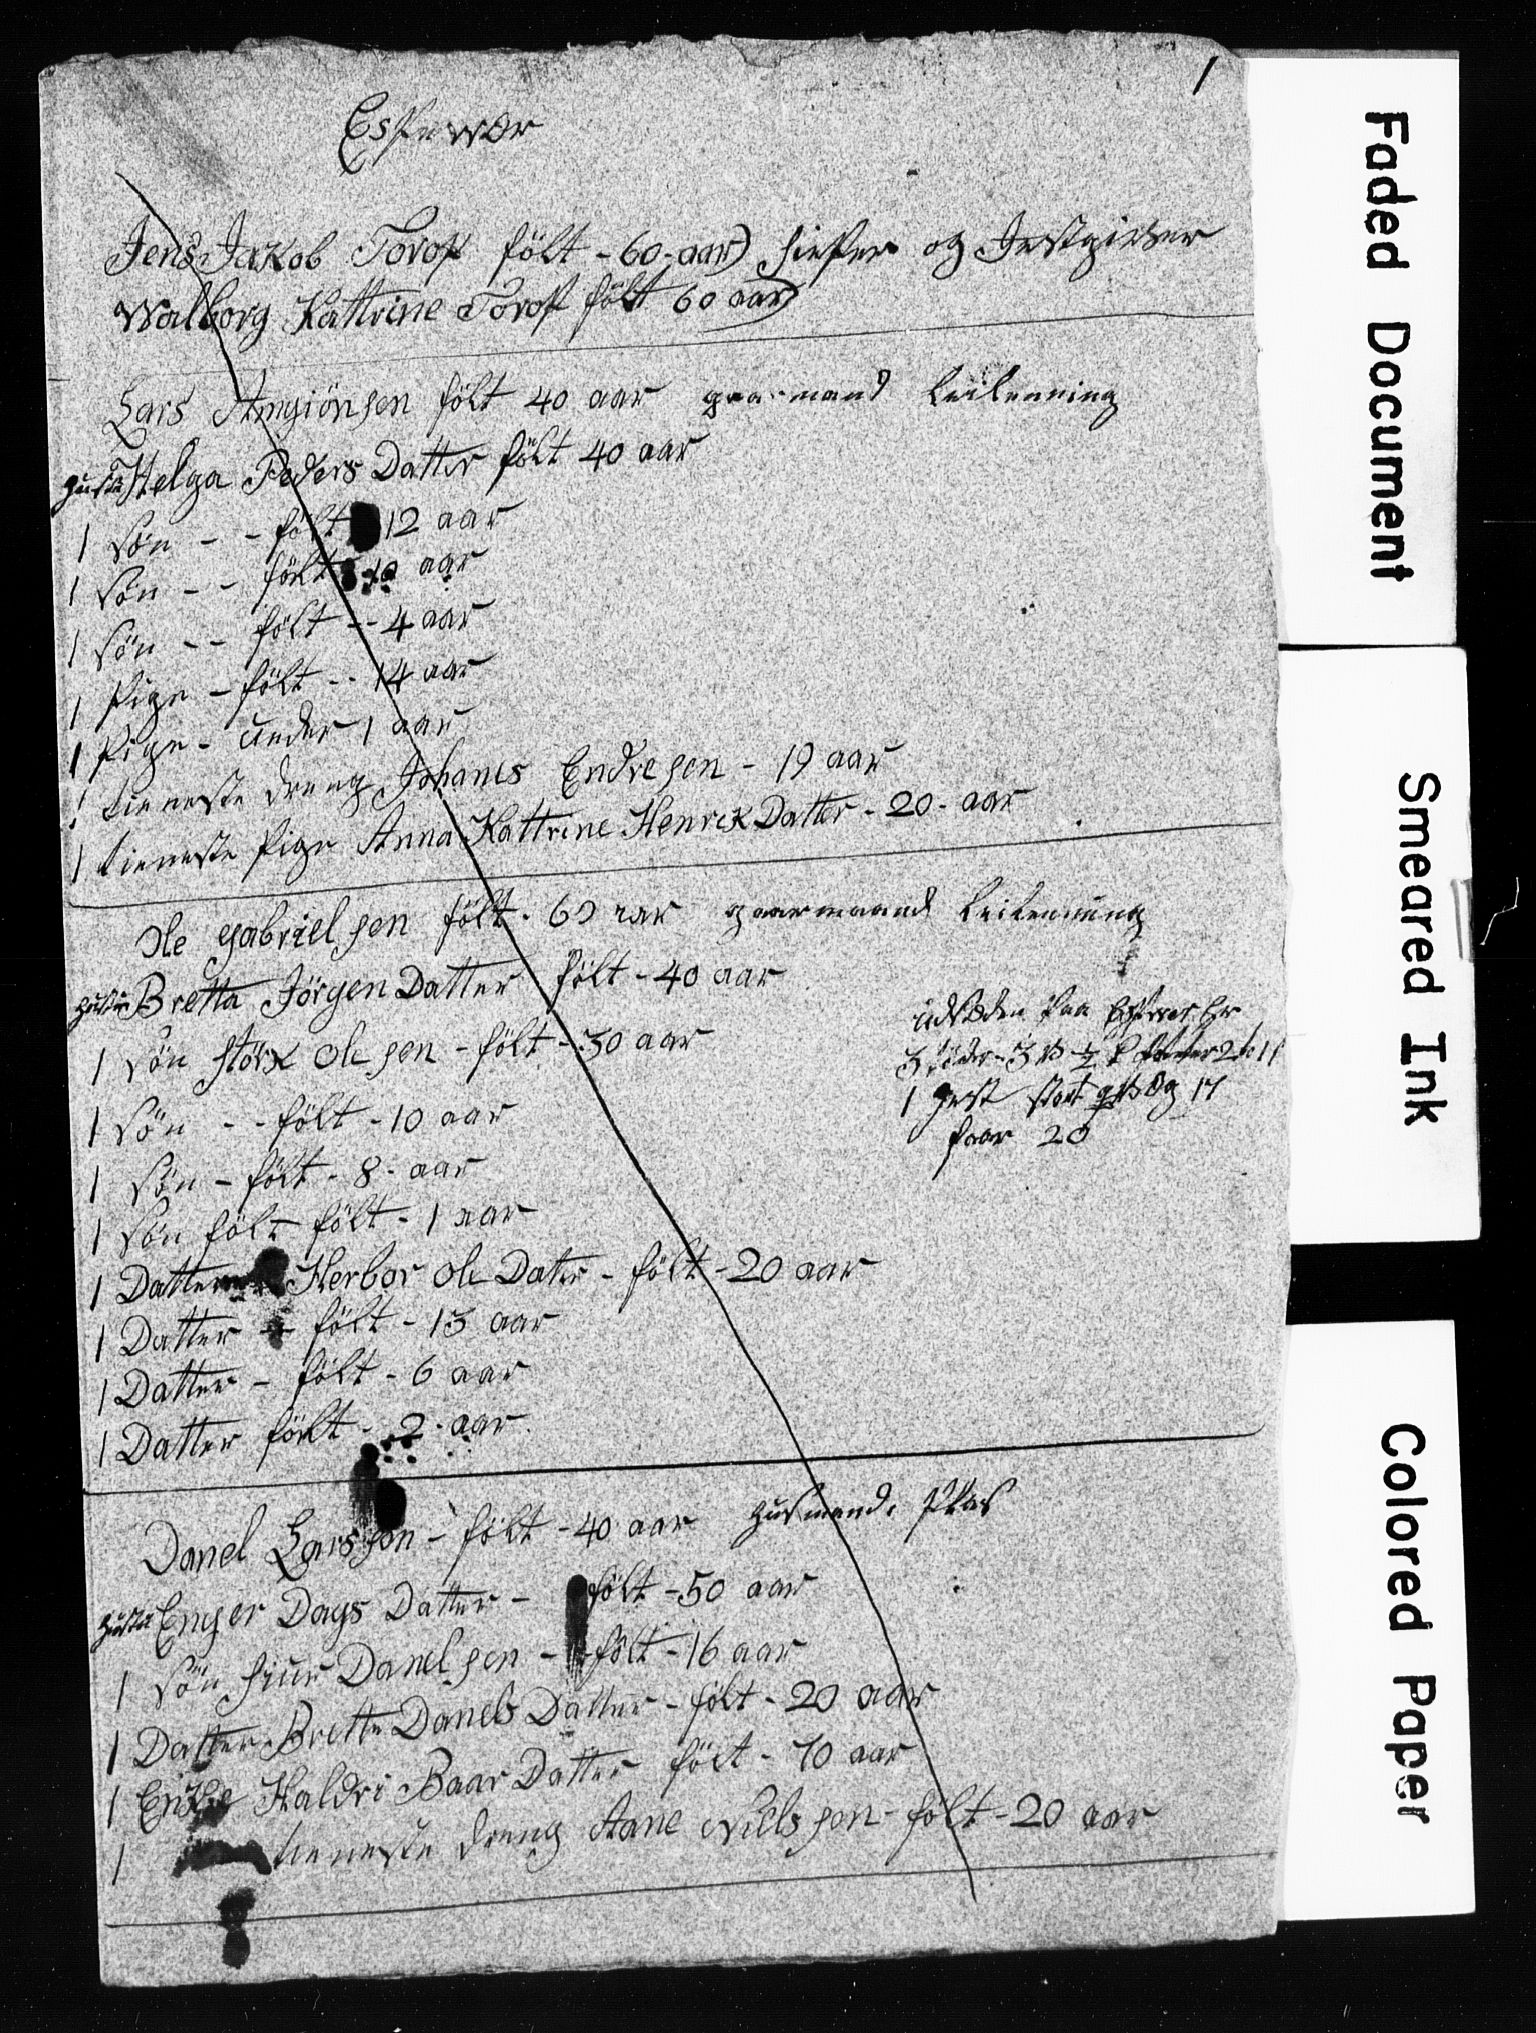 1
Espevær
Jens Jakob Forof fölt - 60 - aar) Skiper og Jestgiver
Walborg Kattrine Forof fölt 60 aar)
Lars Amgiönsen fölt 40 aar gaarmand Leilenning
Hustu Helga Peders Datter fölt 40 aar
1 Sön - - fölt 12 aar
1 Sön - - fölt 10 aar
1 Sön - - fölt - - 4 aar
1 Pige - fölt - - 14 aar
1 Pige - under 1 aar
1 tieneste dreng Johanes Endresen - 19 aar
1 tieneste Pige Anna Kattrine Henrek Datter - 20 - aar
Ole gabrielsen fölt - 60 aar gaarmaand Leilenning
Hustu Bretta Jörgen Datter fölt - 40 aar
1 Sön Störk Olesen - fölt - 30 aar
1 Sön - - fölt - 10 aar
1 Sön - fölt - 8 - aar
1 Sön fölt fölt - 1 aar
1 Datter Herbor Ole Dater - fölt - 20 aar
1 Datter - fölt - 13 aar
1 Datter - fölt - 6 aar
1 Datter fölt - 2 - aar
udsæden paa Espever er
1 Hest stort qvæg 17
faar 20
Danel Larssen - fölt - 40 aar Husmands Plas
Hustu Enger Dags Datter - fölt - 50 aar
1 Sön Siur Danelsen - fölt - 16 aar
1 Datter Brette Danels Datter - fölt - 20 aar
1 Enke Haldri Baar Datter fölt - 70 aar
1 tieneste dreng Aane Nielssen - fölt - 20 aar
Faded Document
Smeared Ink
Colored Paper